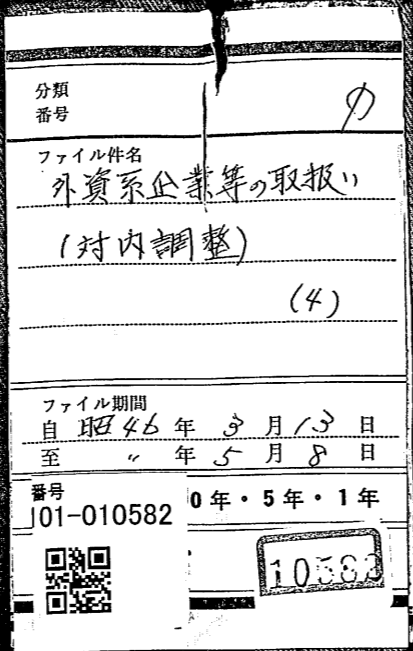 分類
番号
ファイル件名
外資系企業等の取扱い
(対内調整)
(4)
ファイル期間
自 昭46年3月13日
至 〃年5月8日
番号
J01-010582
0年・5年・1年